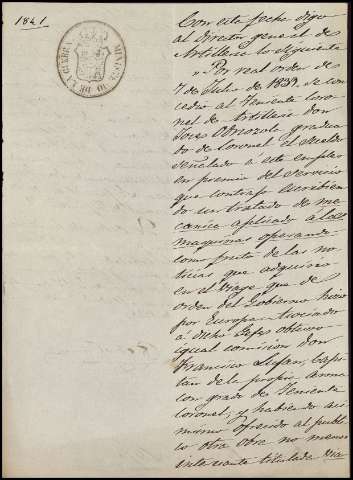 1841
MINISTERIO DE LA GUERRA
Con esta fecha digo
al Director general de
Artilleria lo siguiente
"Por real orden de
7 de Julio de 1839, se con
cedió al Teniente Coro
nel de Artilleria don
José Odriozola gradua
do de Coronel el sueldo
señalado á este empleo
en premio del servicio
que contrajo escribien
do un tratado de me
canica aplicada á las
maquinas operando
como fruto de las no
ticias que adquirió
en el viage que de
orden del Gobierno hizo
por Europa. Asociado
á dicho Gefe obtuvo
igual comision don
Francisco Luxan, Capi
tan de la propia arma
con grado de Teniente
Coronel; y habiendo asi
mismo ofrecido al públi
co otra obra no menos
interesante titulada